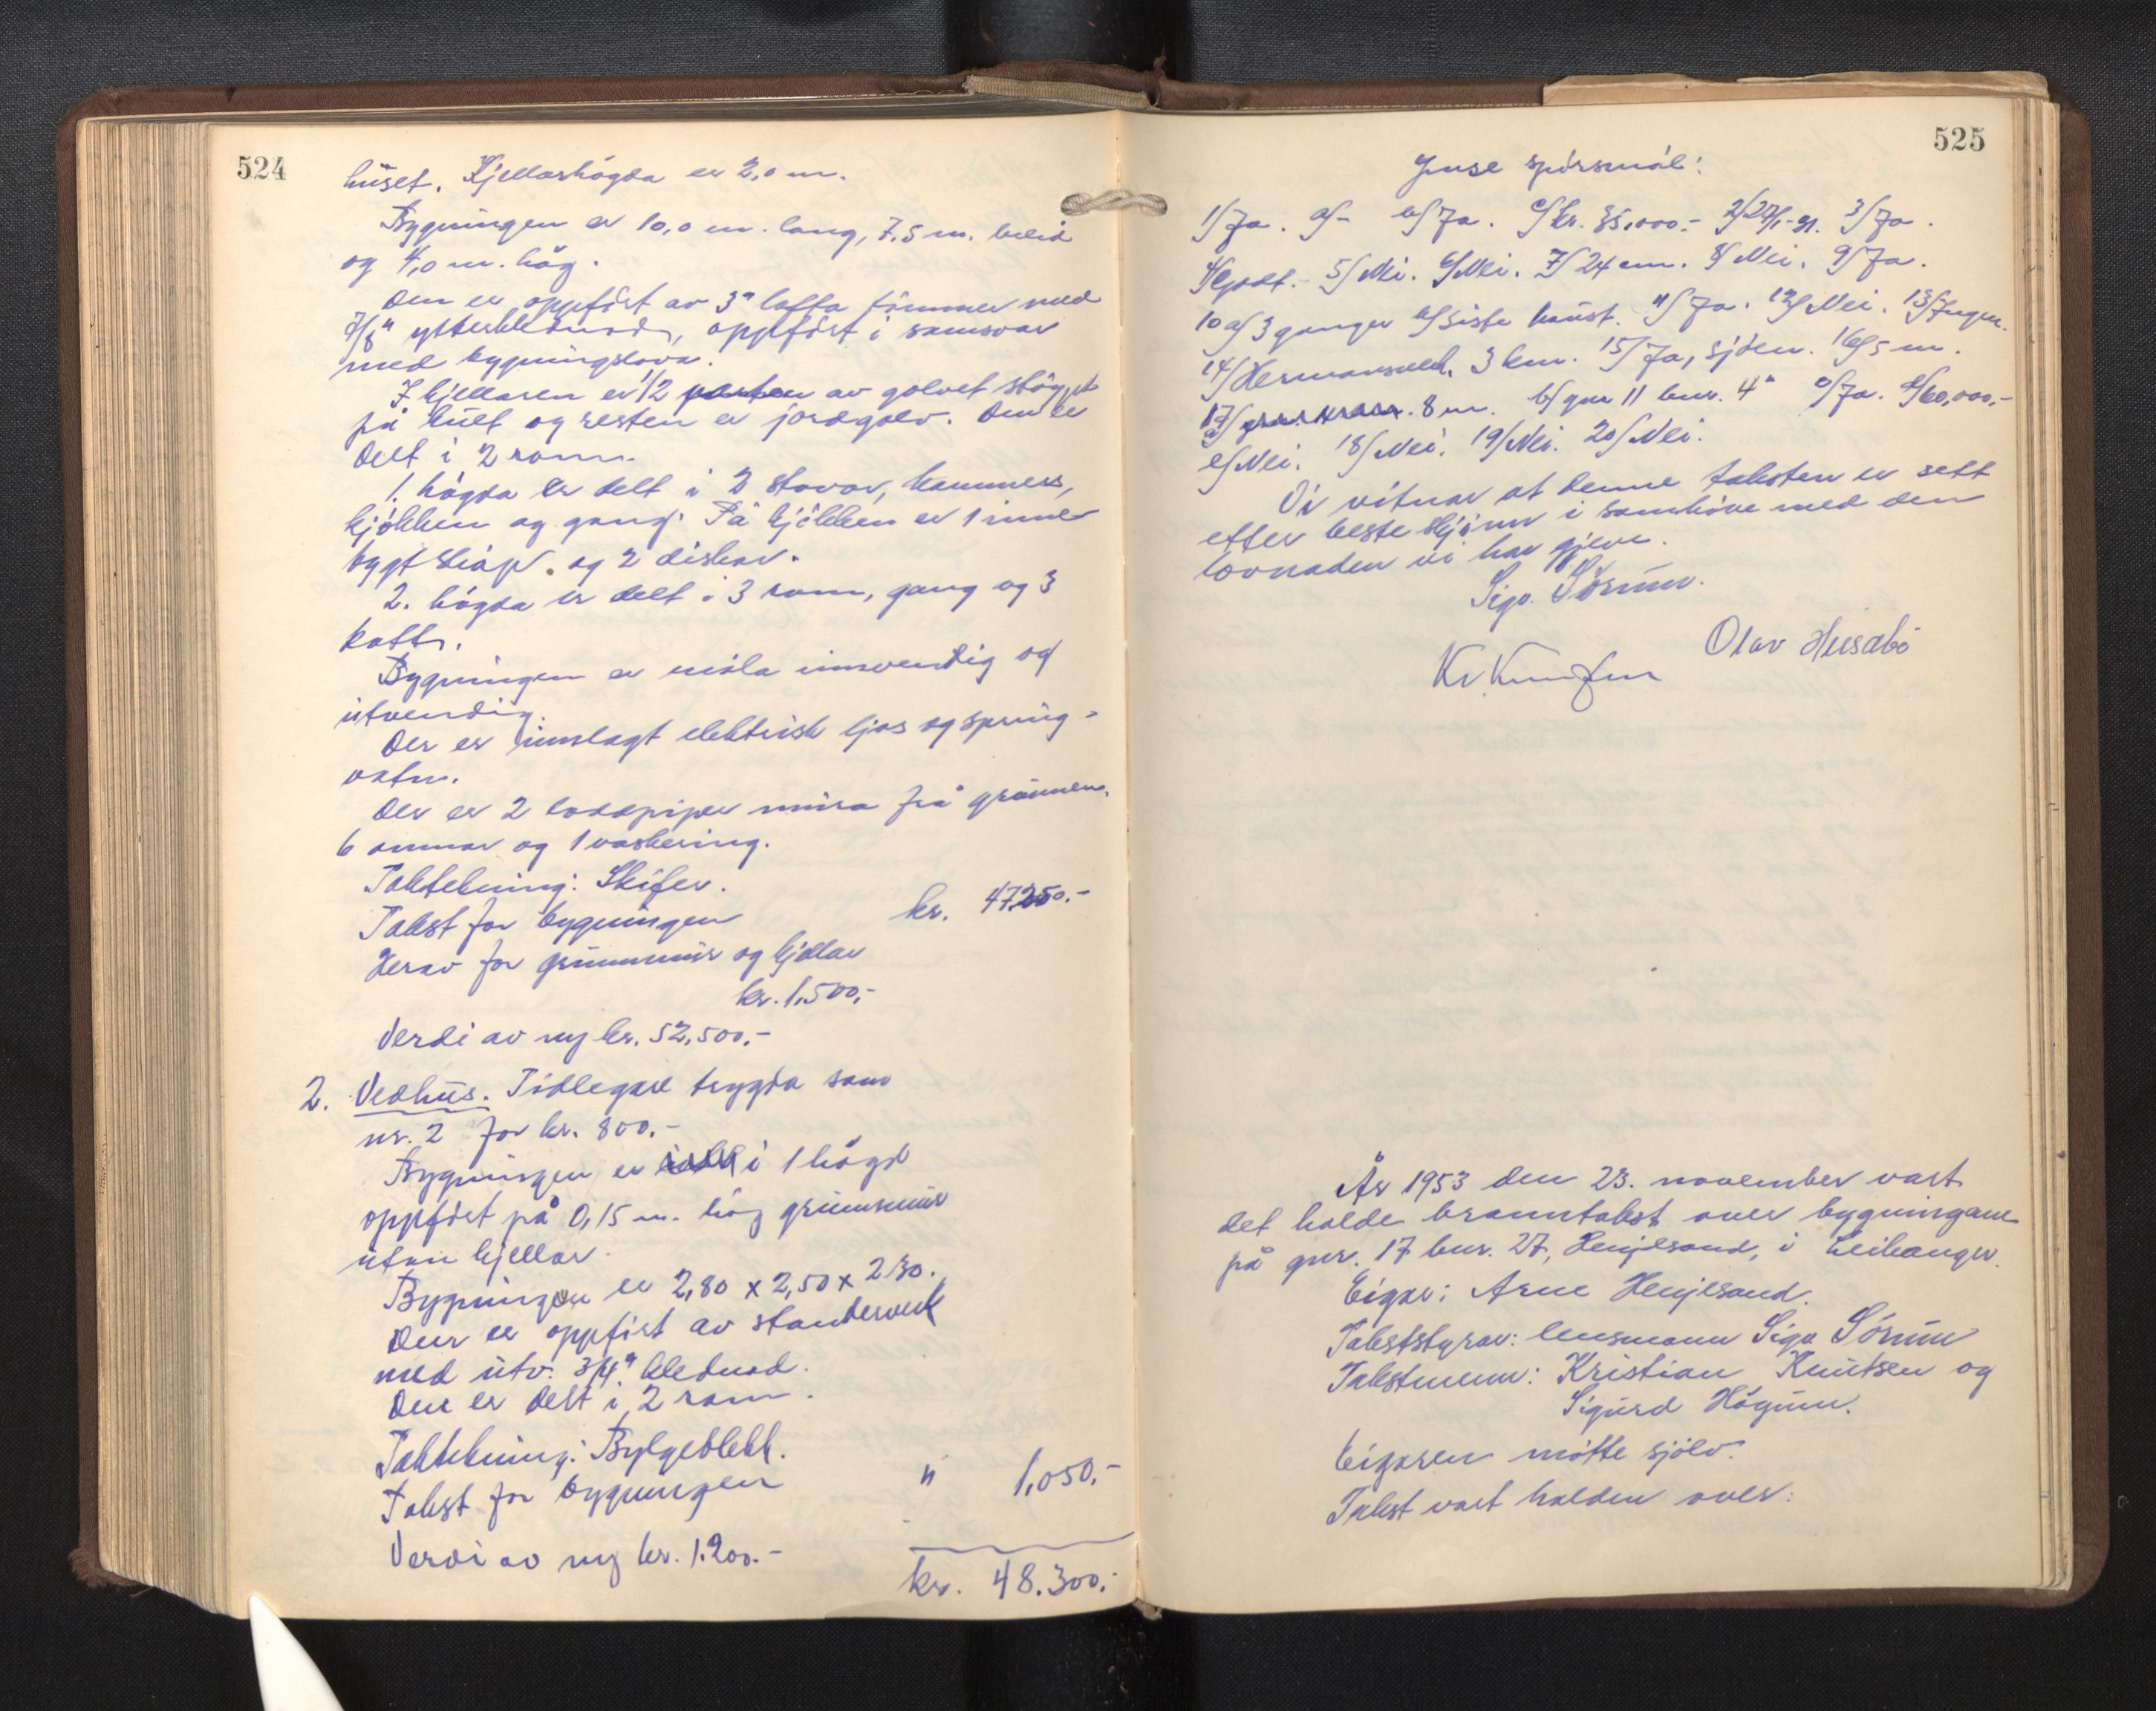 524
huset. Kjellarhögda er 2,0 m.
Bygningen er 10,0 m. lang, 7,5 m. breid
og 4,0 m. høg.
Den er oppført av 3" lafta tömmer med
7/8" ytterklednad, oppført i samsvar
med bygningslova.
I kjellaren er 1/2 parten av golvet støypt
på kult og resten er jordgolv. Den er
delt i 2 rom.
1. högda er delt i 2 stover, kammers,
kjökken og gang. På kjökken er 1 inne-
bygt skåp og 2 diskar.
2. högda er delt i 3 rom, gang og 3
kott.
Bygningen er måla innvendig og
utvendig.
Der er innlagt elektrisk ljos og spring-
vatn.
Der er 2 loddpiper mura frå grunnen,
6 omnar og 1 vaskering.
Taktekning: Skifer.
Takst for bygningen kr. 47.250.-
Herav for grunnmur og kjellar
kr. 1.500,-
Verdi av ny kr. 52,500.-
2. Vedhus. Tidlegare trygda som
nr. 2 for kr. 800.-
Bygningen er i 1 högd
oppført på 0,15 m. høg grunnmur
utan kjellar.
Bygningen er 2,80 x 2,50 x 2,30.
Den er oppført av standerverk
med utv. 3/4" klednad.
Den er delt i 2 rom.
Taktekning: Bylgeblekk.
Takst for bygningen " 1,050.-
Verdi av ny kr. 1.200.-
kr. 48.300.-
525
Juse spörsmål:
1/Ja. a/- b/Ja. c/kr. 35,000.- 3/Ja.
5/Nei. 6/Nei. 7/24 cm. 8/Nei. 9/Ja.
10 a/3 ganger b/siste haust. 11/Ja. 12/Nei. 13/Ingen.
14/Hermansverk, 3 km. 15/Ja, sjöen. 16/5 m.
17/ 8 m. b/gnr 11 bnr. 4 c/Ja. d/60,000,-
e/Nei. 18/Nei. 19/Nei. 20/Nei.
Vi vitnar at denne taksten er sett
etter beste skjönn i samhöve med den
lovnaden vi har gjeve.
Sigv. Sörum.
Olav Husabö
Kr. Knutsen
År 1953 den 23. november vart
det halde branntakst over bygningane
på gnr. 17 bnr. 27, Henjesand, i Leikanger.
Eigar: Arne Henjesand.
Takststyrar: lensmann Sigv Sörum
Takstmenn: Kristian Knutsen og
Sigurd Högum.
Eigaren møtte sjölv.
Takst vart halden over: